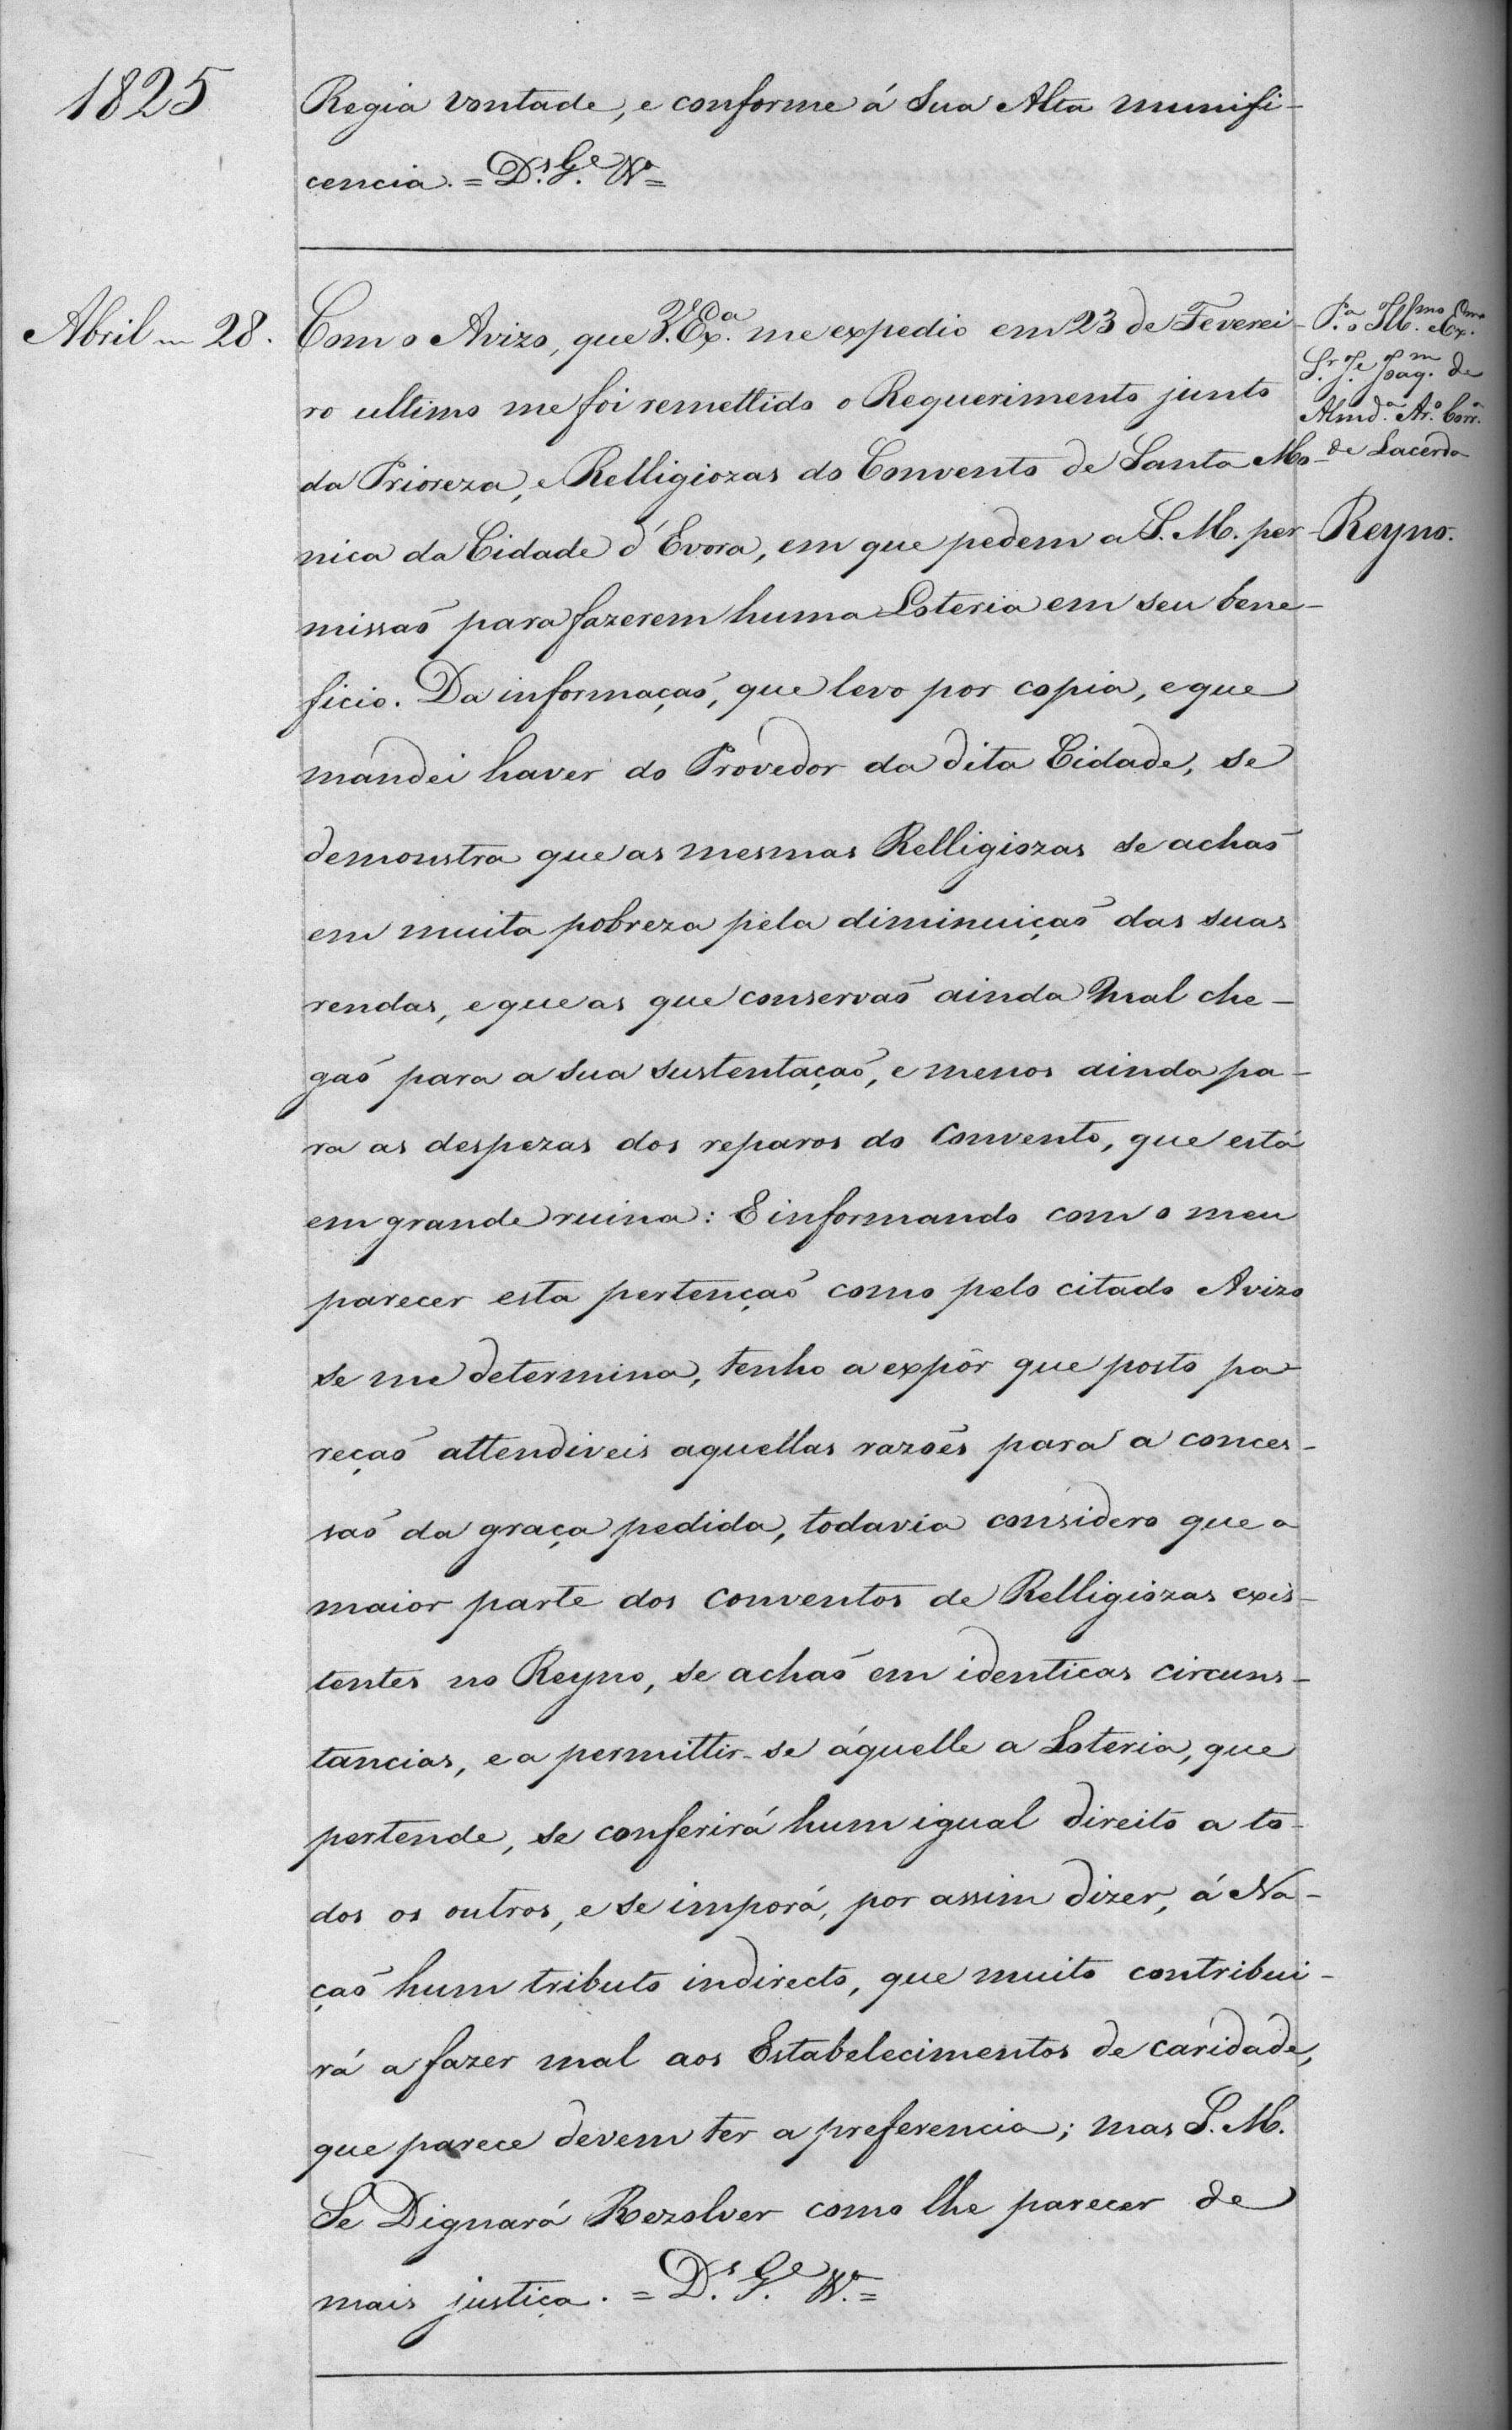 1825
Regia vontade, e conforme á Sua Alta munifi-
cencia. = D.s G.e V.a =
Abril 28.
Com o Avizo, que V. Ex.a me expedio em 23 de Feverei-
ro ultimo me foi remettido o Requerimento junto
da Prioreza, e Relligiozas do Convento de Santa Mo-
nica da Cidade d'Evora, em que pedem a S. M. per-
missaõ para fazerem huma Loteria em seu bene-
ficio. Da informaçaõ, que levo por copia, e que
mandei haver do Provedor da dita Cidade, se
demonstra que as mesmas Relligiozas se achaõ
em muita pobreza pela diminuiçaõ das suas
rendas, e que as que conservaõ ainda mal che-
gaõ para a sua sustentaçaõ, e menos ainda pa-
ra as despezas dos reparos do Convento, que está
em grande ruina: E informando com o meu
parecer esta pertençaõ como pelo citado Avizo
se me determina, tenho a expôr que posto pa-
reçaõ attendiveis aquellas razoẽs para a conces-
saõ da graça pedida, todavia considero que a
maior parte dos Conventos de Relligiozas exis-
tentes no Reyno, se achaõ em identicas circuns-
tancias, e a permittir-se áquelle a Loteria, que
pertende, se conferirá hum igual direito a to-
dos os outros, e se imporá, por assim dizer, á Na-
çaõ hum tributo indirecto, que muito contribui-
rá a fazer mal aos Estabelecimentos de caridade,
que parece devem ter a preferencia; mas S. M.
Se Dignará Rezolver como lhe parecer de
mais justiça. = D.s G.e V.a =
P.a o Ill.mo Ex.mo
S.r J.e Joaq.m de
Almd.a Ar.o Corr.a
de Lacerda
Reyno.